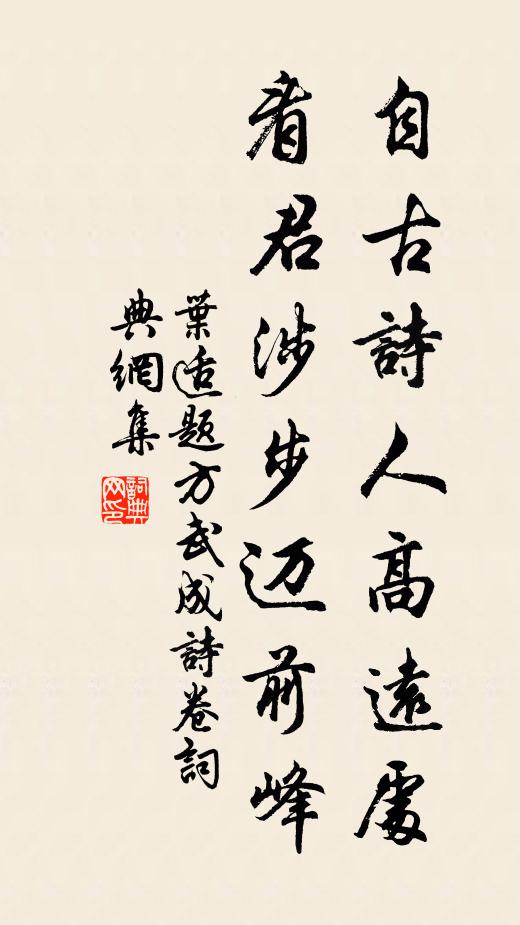 自古詩人高遠處
看君涉步迈前峰
葉适題方武成詩卷詞
典網集
詞典网印